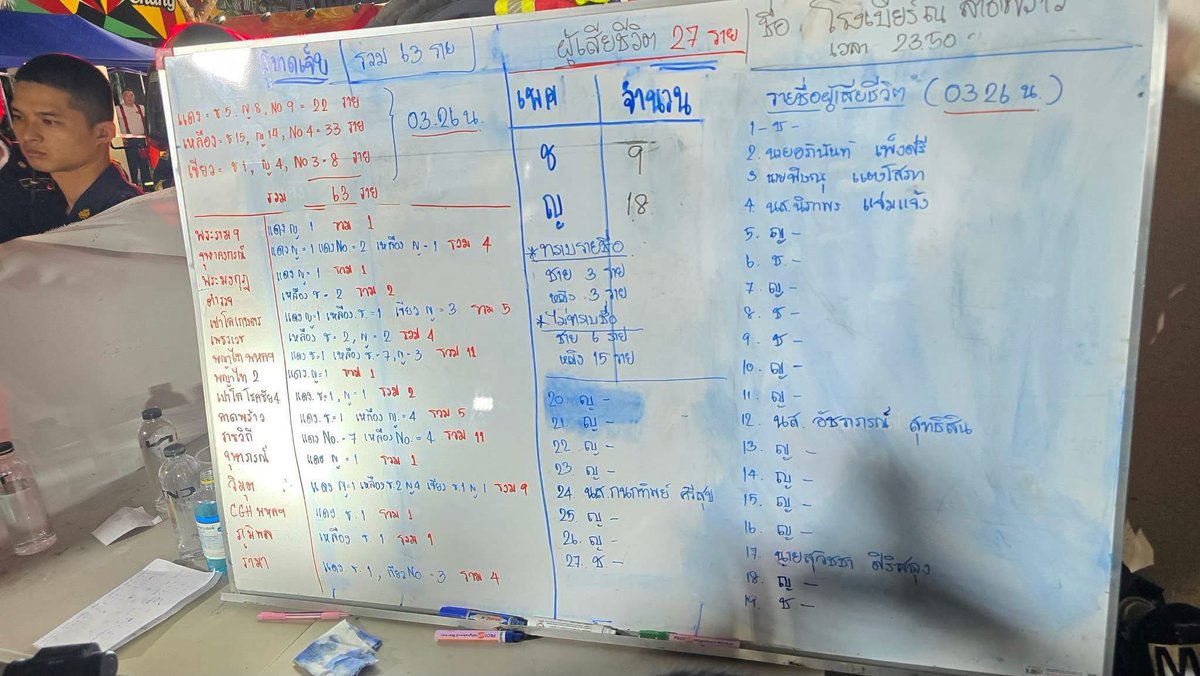 Chang
ผู้บาดเจ็บ รวม 63 ราย
แดง = ช 5, ญ 8, No 9 = 22 ราย
เหลือง = ช 15, ญ 14, No 4 = 33 ราย
เขียว = ช 1, ญ 4, No 3 = 8 ราย
03.26 น.
รวม 63 ราย
พระราม 9 แดง ญ 1 รวม 1
จุฬาลงกรณ์ แดง ญ = 1 แดง No. = 2 เหลือง ญ = 1 รวม 4
พระมงกุฎ แดง ญ = 1 รวม 1
ตำรวจ เหลือง ช = 2 รวม 2
เปาโลเกษตร แดง ญ = 1 เหลือง ช. = 1 เขียว ญ = 3 รวม 5
เพชรเวช เหลือง ช = 2, ญ = 2 รวม 4
พญาไท พหลฯ แดง ช = 1 เหลือง ช = 7, ญ = 3 รวม 11
พญาไท 2 แดง. ญ = 1 รวม 1
เปาโล โชคชัย 4 แดง. ช = 1, ญ = 1 รวม 2
ลาดพร้าว แดง. ช = 1 เหลือง ญ. = 4 รวม 5
ราชวิถี แดง No. = 7 เหลือง No. = 4 รวม 11
จุฬาภรณ์ แดง ญ = 1 รวม 1
วิมุต แดง ญ = 1 เหลือง ช 2 ญ 4 เขียว ช 1 ญ 1 รวม 9
CGH พหลฯ แดง ช. 1 รวม 1
ภูมิพล เหลือง ช. 1 รวม 1
รามา แดง ช. 1, เขียว No. = 3 รวม 4
ผู้เสียชีวิต 27 ราย
เพศ จำนวน
ช 9
ญ 18
* ทราบรายชื่อ
ชาย 3 ราย
หญิง 3 ราย
* ไม่ทราบชื่อ
ชาย 6 ราย
หญิง 15 ราย
20. ญ -
21. ญ -
22. ญ -
23. ญ -
24. นส. กนกทิพย์ ศรีสุข
25. ญ -
26. ญ -
27. ช -
ชื่อ โรงเบียร์ ณ ลาดพร้าว
เวลา 23.50
รายชื่อผู้เสียชีวิต (03.26 น.)
1 - ช -
2. นายอภินันท์ เพ็งศรี
3 นายพิษณุ แตงโสภา
4. นส. นิภาพร แช่มแจ้ง
5. ญ -
6. ช -
7. ญ -
8. ช -
9. ช -
10. ญ -
11. ญ -
12. นส. อัจฉราภรณ์ สุทธิสิน
13. ญ -
14. ญ -
15. ญ -
16. ญ -
17. นาย
18. ญ -
19. ช -
M